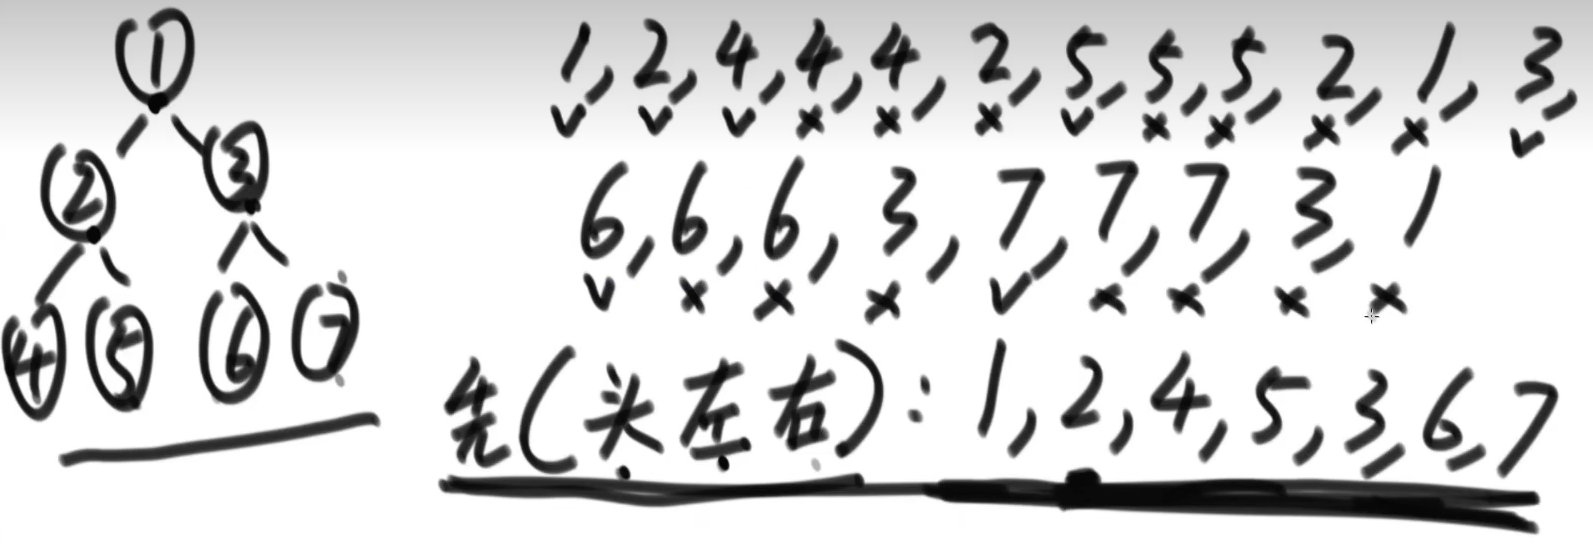 1
2 3
4 5 6 7
1, 2, 4, 4, 4, 2, 5, 5, 5, 2, 1, 3,
✓ ✓ ✓ × × × ✓ × × × × ✓
6, 6, 6, 3, 7, 7, 7, 3, 1
✓ × × × ✓ × × × ×
先(头左右): 1, 2, 4, 5, 3, 6, 7